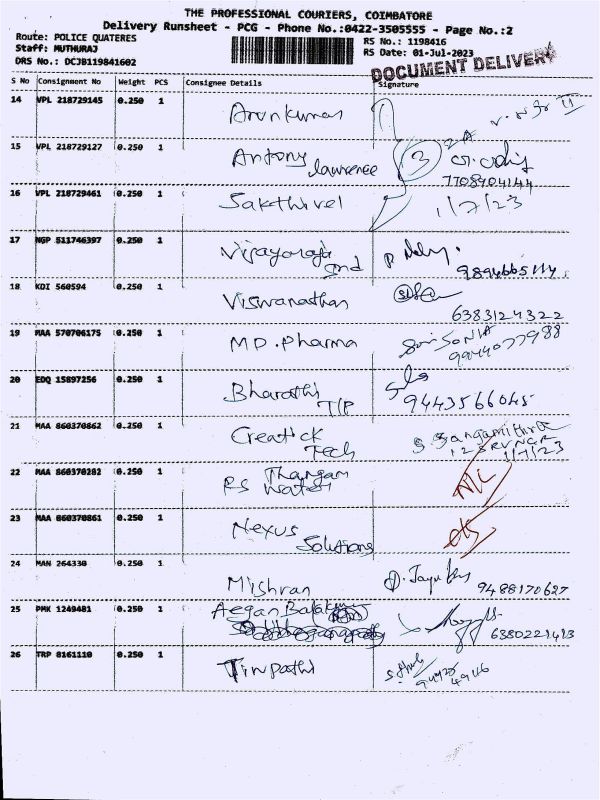 THE PROFESSIONAL COURIERS, COIMBATORE
Delivery Runsheet - PCG - Phone No.:0422-3505555 - Page No.:2
Route: POLICE QUATERES
RS No.: 1198416
Staff: MUTHURAJ
RS Date: 01-Jul-2023
DRS No.: DCJB119841602
DOCUMENT DELIVERY
S No Consignment No Weight PCS Consignee Details Signature
14 VPL 218729145 0.250 1 Arunkumar
15 VPL 218729127 0.250 1 Antony lawrence 3 2A
7708904144
16 VPL 218729461 0.250 1 Sakthivel 1/7/23
17 NGP 511746397 0.250 1
18 KDI 560594 0.250 1 Viswanathan
6383124322
19 MAA 570706175 0.250 1 MD.Pharma SONIA
9944077988
20 EDQ 15897256 0.250 1 Bharathi T/P
9443566045
21 MAA 860370862 0.250 1 Creatick Tech S. Sangamithra
1/7/23
22 MAA 860370282 0.250 1 RS Thangam Water N/C
23 MAA 860370861 0.250 1 Nexus Solutions
24 MAN 264330 0.250 1 Mishran
9488170627
25 PMK 1249481 0.250 1 Aegan
6380221413
26 TRP 8161110 0.250 1 Tirupathi